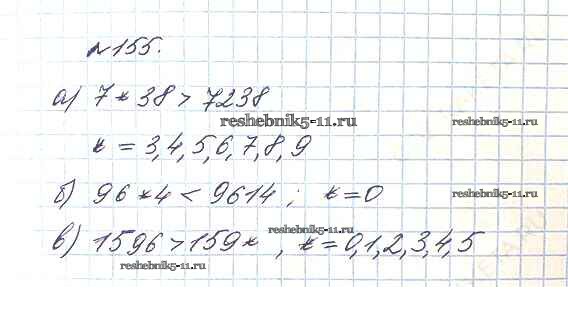 №155.
а) 7*38 > 7238
reshebnik5-11.ru
reshebnik5-11.ru
* = 3,4,5,6,7,8,9
б) 96*4 < 9614 ; * = 0
reshebnik5-11.ru
reshebnik5-11.ru
в) 1596 > 159* , * = 0,1,2,3,4,5
reshebnik5-11.ru